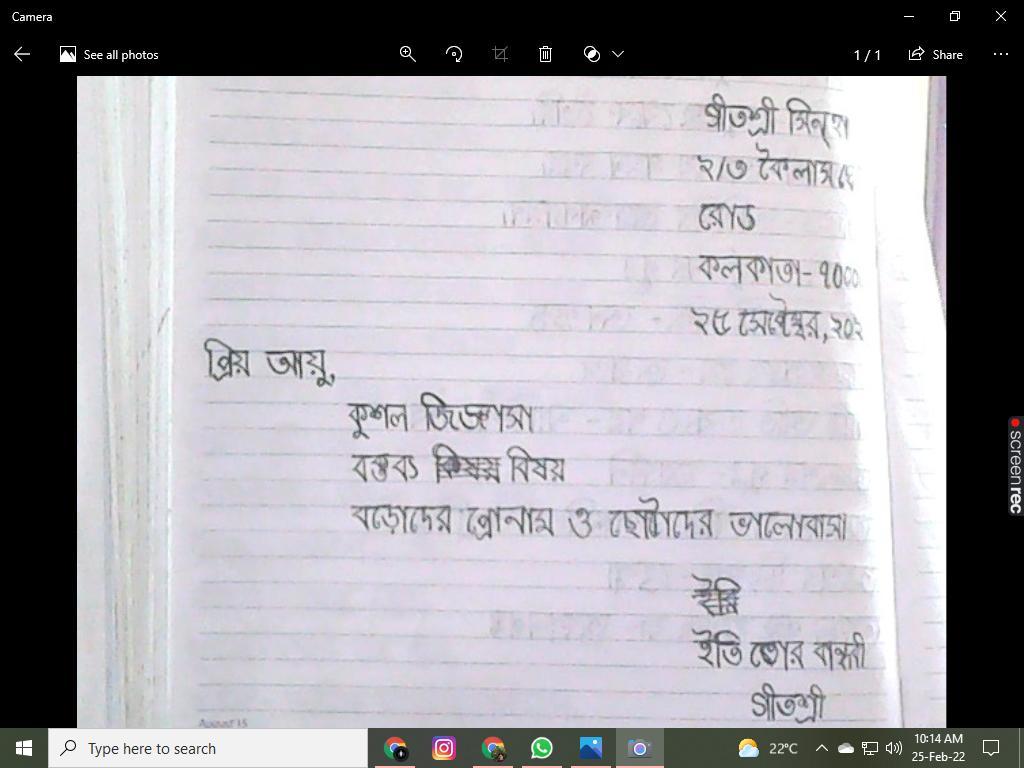 Camera
See all photos
1 / 1
Share
গীতশ্রী সিনহা
২/৩
রোড
কলকাতা- ৭০০০
২৫ সেপ্টেম্বর, ২০২
প্রিয় আয়ু,
কুশল জিজ্ঞাসা
বক্তব্য বিষয়
বড়োদের প্রোনাম ও ছোটোদের ভালোবাসা
ইতি তোর বান্ধবী
গীতশ্রী
August 15
screenrec
Type here to search
22°C
10:14 AM
25-Feb-22